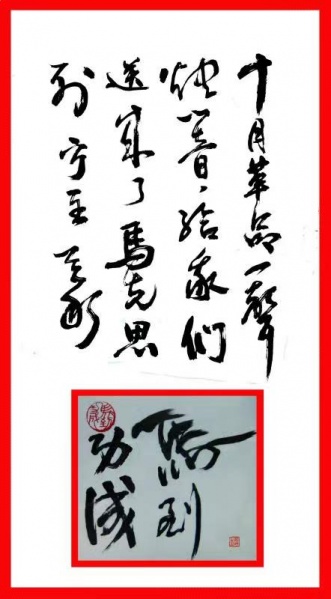 十月革命一聲
炮响,给我們
送来了馬克思
列宁主義
馬到
功成